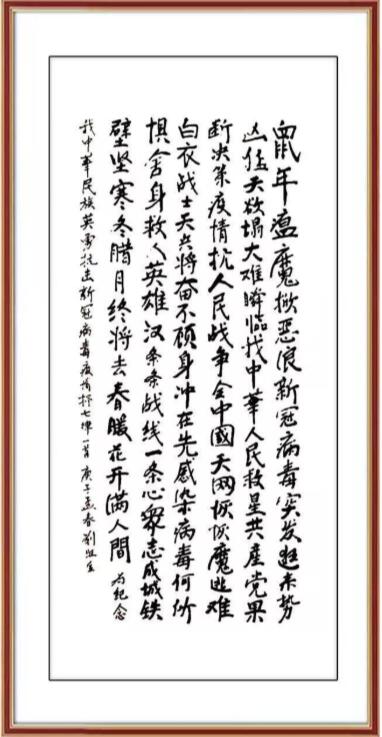 鼠年瘟魔掀恶浪新冠病毒突发逛来势
凶猛天欲塌大难瞬临我中華人民救星共産党果
断决策疫情抗人民战争全中國天网恢恢魔逃难
白衣战士天兵将奋不顾身冲在先感染病毒何所
惧舍身救人英雄汉条条战线一条心衆志成城铁
壁坚寒冬腊月终将去春暖花开满人間 为纪念
我中華民族英勇抗击新冠病毒疫情抒七律一首 庚子孟春 劉